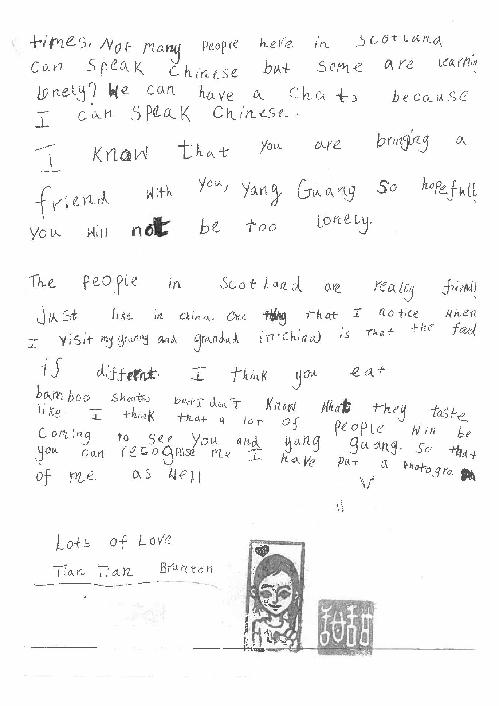 times. Not many people here in Scotland
can speak chinese but some are learnin
lonely? We can have a chats because
I can speak Chinese.
I know that you are bringing a
friend with you, Yang Guang so hopefull
you will not be too lonely.
The people in Scotland are really friendl
just like in china. One thing that I notice when
I visit my granny and grandad in china is that the food
is different I think you eat
bamboo shoots but I don't know what they taste
like I think that a lot of people will be
coming to see you and yang guang. So that
you can recognise me I have put a photogra
of me as well
Lots of Love
Tian Tian